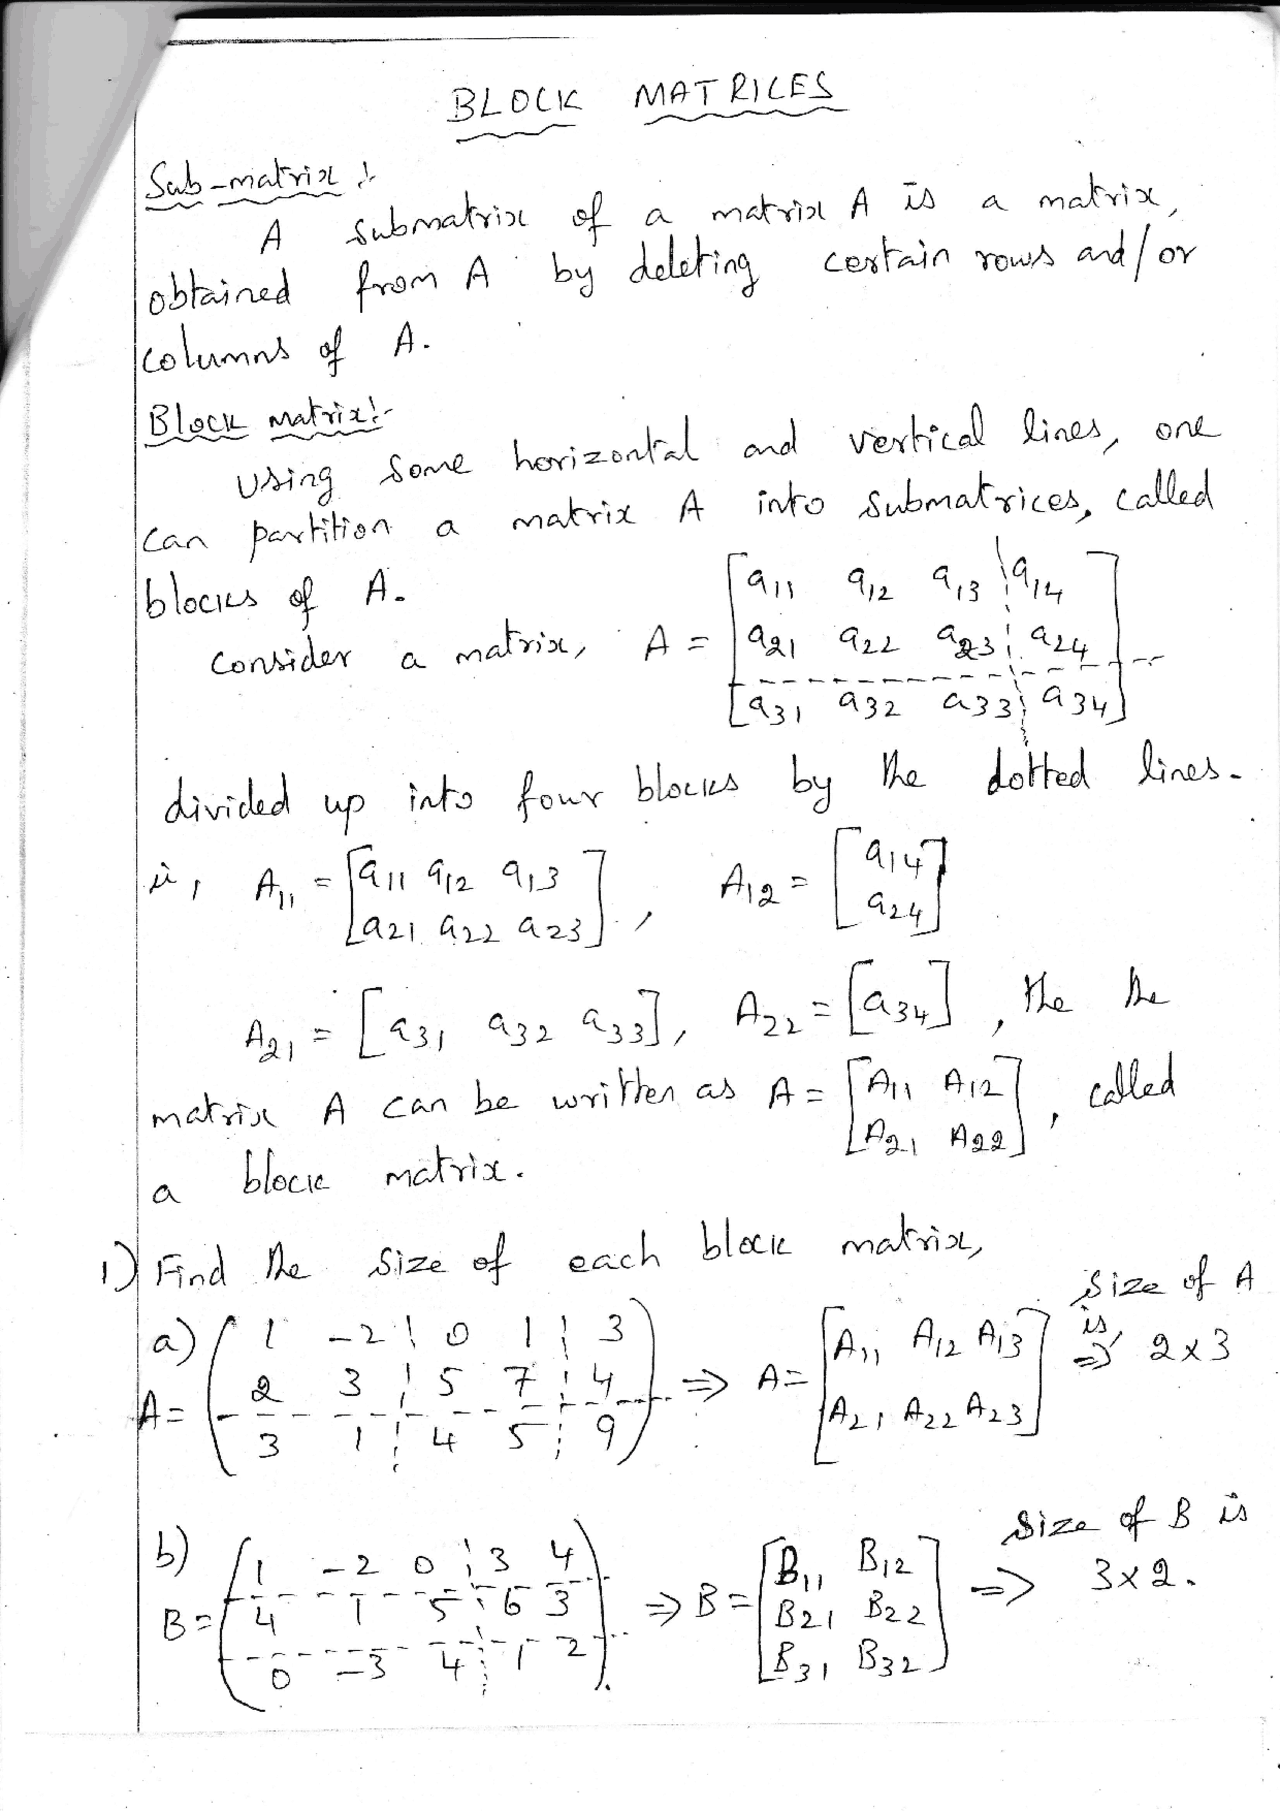 BLOCK MATRICES
Sub-matrix :-
A submatrix of a matrix A is a matrix,
obtained from A by deleting certain rows and/or
columns of A.
Block matrix:-
Using some horizontal and vertical lines, one
can partition a matrix A into submatrices, called
blocks of A.
Consider a matrix, A = [a11 a12 a13 ¦ a14
a21 a22 a23 ¦ a24
a31 a32 a33 ¦ a34]
divided up into four blocks by the dotted lines.
ie, A11 = [a11 a12 a13
a21 a22 a23], A12 = [a14
a24]
A21 = [a31 a32 a33], A22 = [a34], the the
matrix A can be written as A = [A11 A12
A21 A22], called
a block matrix.
1) Find the size of each block matrix,
a) A = (1 -2 ¦ 0 1 ¦ 3
2 3 ¦ 5 7 ¦ 4
3 1 ¦ 4 5 ¦ 9) => A = [A11 A12 A13
A21 A22 A23] => size of A is, 2x3
b) B = (1 -2 0 ¦ 3 4
4 1 5 ¦ 6 3
0 -3 4 ¦ 1 2) => B = [B11 B12
B21 B22
B31 B32] => Size of B is
3x2.